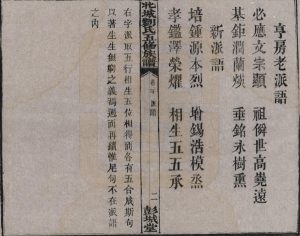 亨房老派語
必應文宗顯　祖儕世高堯遠
基鉅潤蘭煥　垂銘永樹熏
新派語
培鍾源本烈　增錫浩模烝
孝鑑澤榮燿　相生五五承
北城劉氏五修族譜
卷首 派語
二
彭城堂
右字派取五行相生五位相得而各有五合成斯句
以著生生無窮之義週而再續惟尾句不在派語
之內